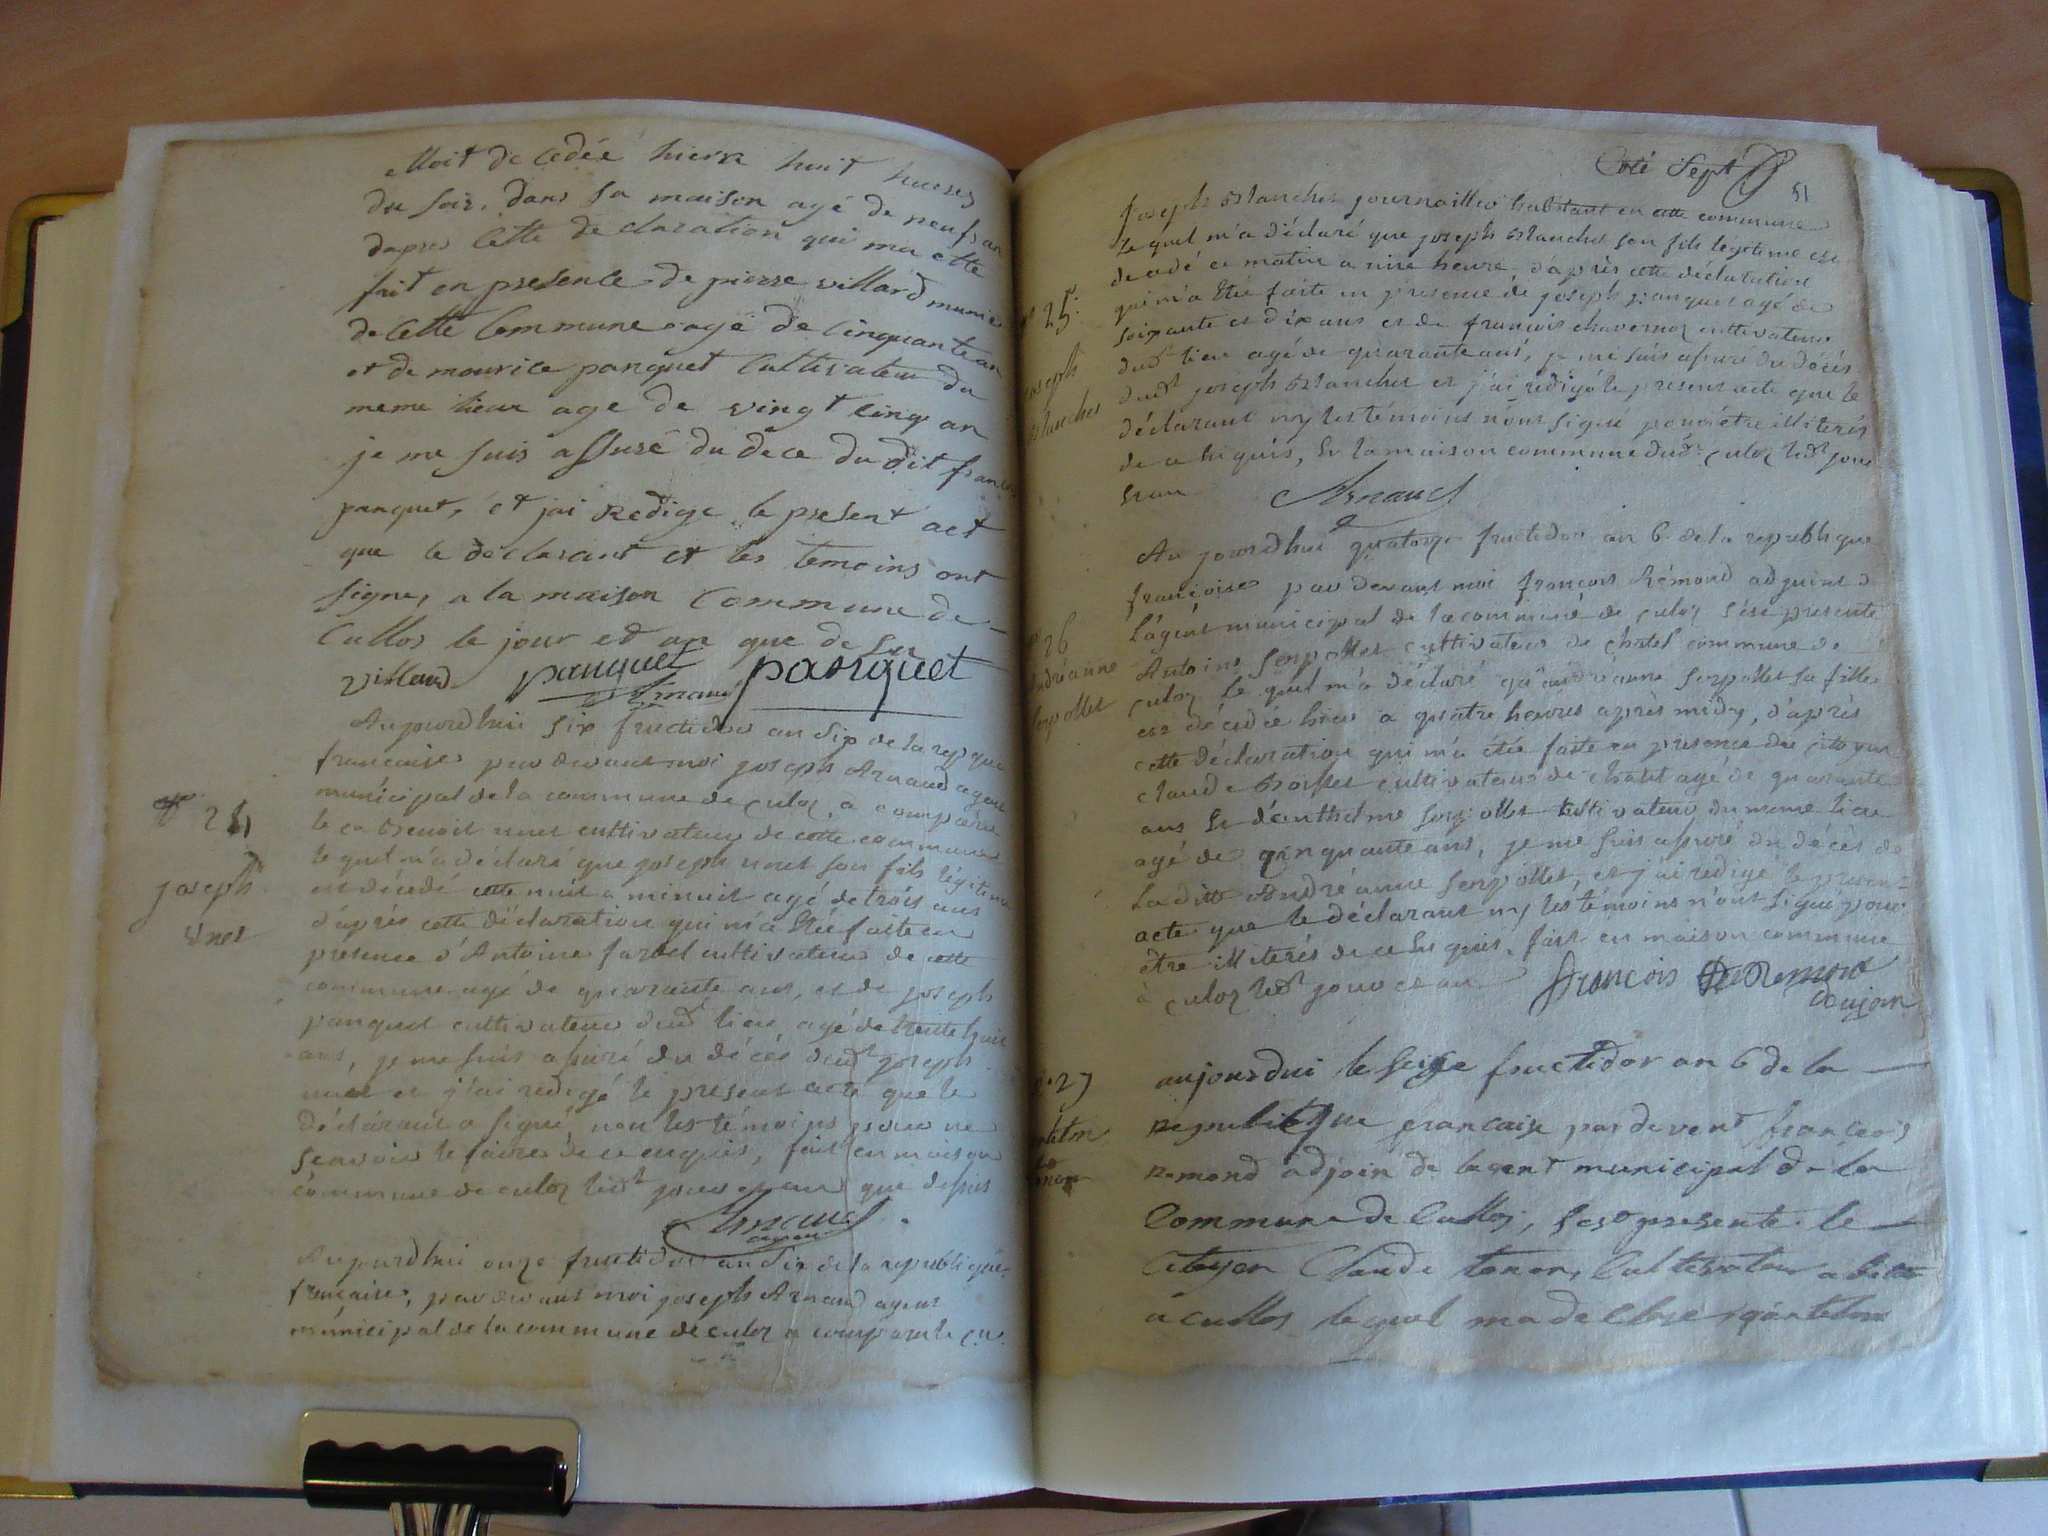 etloit de cedée hierre huit hueres
du soir, dans sa maison agé de neufs an
dapres Cette de claration qui ma ette
fait en presence de pierre villard munie
de Cette Commune age de Cinquante an
et de mourice panquet Cultivateur du
meme lieur age de vingt Cinq an
je me suis assuré du dece du dit francois
panquet, et jai Redige le present act
que le declarant et les temoins ont
signe, a la maison Commune de
Cullos le jour et an que de su
villard panquet panquet
Arnaud
Aujourdhui six fructidor an six de la repque
francaise par devant moi joseph Arnaud agent
municipal de la commune de culoz a comparu
le cn Benoit unet cultivateur de cette commune
le quel m'a déclaré que joseph unet son fils légitime
est décedé cette nuit a minuit agé de trois ans
d'après cette déclaration qui m'a étée faite en
présence d'Antoine farvel cultivateur de cette
commune agé de quarante ans, et de joseph
panquet cultivateur dudt lieu agé de trente huit
ans, je me suis assuré du décés dudt joseph
unet et j'ai redigé le present acte que le
déclarant a signé, non les témoins pour ne
scavoir le faire de ce enquis, fait en maison
commune de culoz ledt jour et an que dessus
Arnaud
agent
Aujourdhui onze fructidor an six de la republique
française, par devant moi joseph Arnaud agent
municipal de la commune de culoz a comparu le cn
24
joseph
unet
Coté Sept
51
joseph Blanchet journaillier habitant en cette commune
le quel m'a déclaré que joseph Blanchet son fils légitime est
decedé ce matin a nine heure, d'après cette déclaration
qui m'a étée faite en presence de joseph panquet agé de
soixante et dix ans et de françois chavernoz cultivateur
dudt lieu agé de quarante ans, je me suis assuré du décés
dudt joseph Blanchet et j'ai redigé le present acte que le
déclarant ny les témoins n'ont signé pour être illiterés
de ce enquis, En la maison commune dudt culoz ledt jour
et an
Arnaud
Au jourdhui quatorze fructidor an 6 de la republique
françoise par devant moi françois Rémond adjoint de
l'agent municipal de la commune de culoz s'est presenté
Antoine serpollet cultivateur de chatel commune de
culoz le quel m'a déclaré qu'andréanne serpollet sa fille
est décedée hier a quatre heures après midy, d'après
cette déclaration qui m'a étée faite en presence du citoyen
claude cultivateur de chatel agé de quarante
ans Et d'anthelme serpollet cultivateur du meme lieu
agé de cinquante ans, je me suis assuré du décés de
La ditte Andréanne serpollet, et j'ai redigé le present
acte que le déclarant ny les témoins n'ont signé pour
être illiterés de ce Enquis, fait en maison commune
à culoz ledt jour et an
françois Remond
adjoin
aujourdui le seize fructidor an 6 de la
republique francaise par devent françois
remond adjoin de lagent municipal de la
Commune de Cullos, sest presenté le
Citoyen Claude tonon, Cultivateur abitan
a cullos lequel ma declare qantelme
25
joseph
Blanchet
26
Andréanne
serpollet
27
antelm
tonon